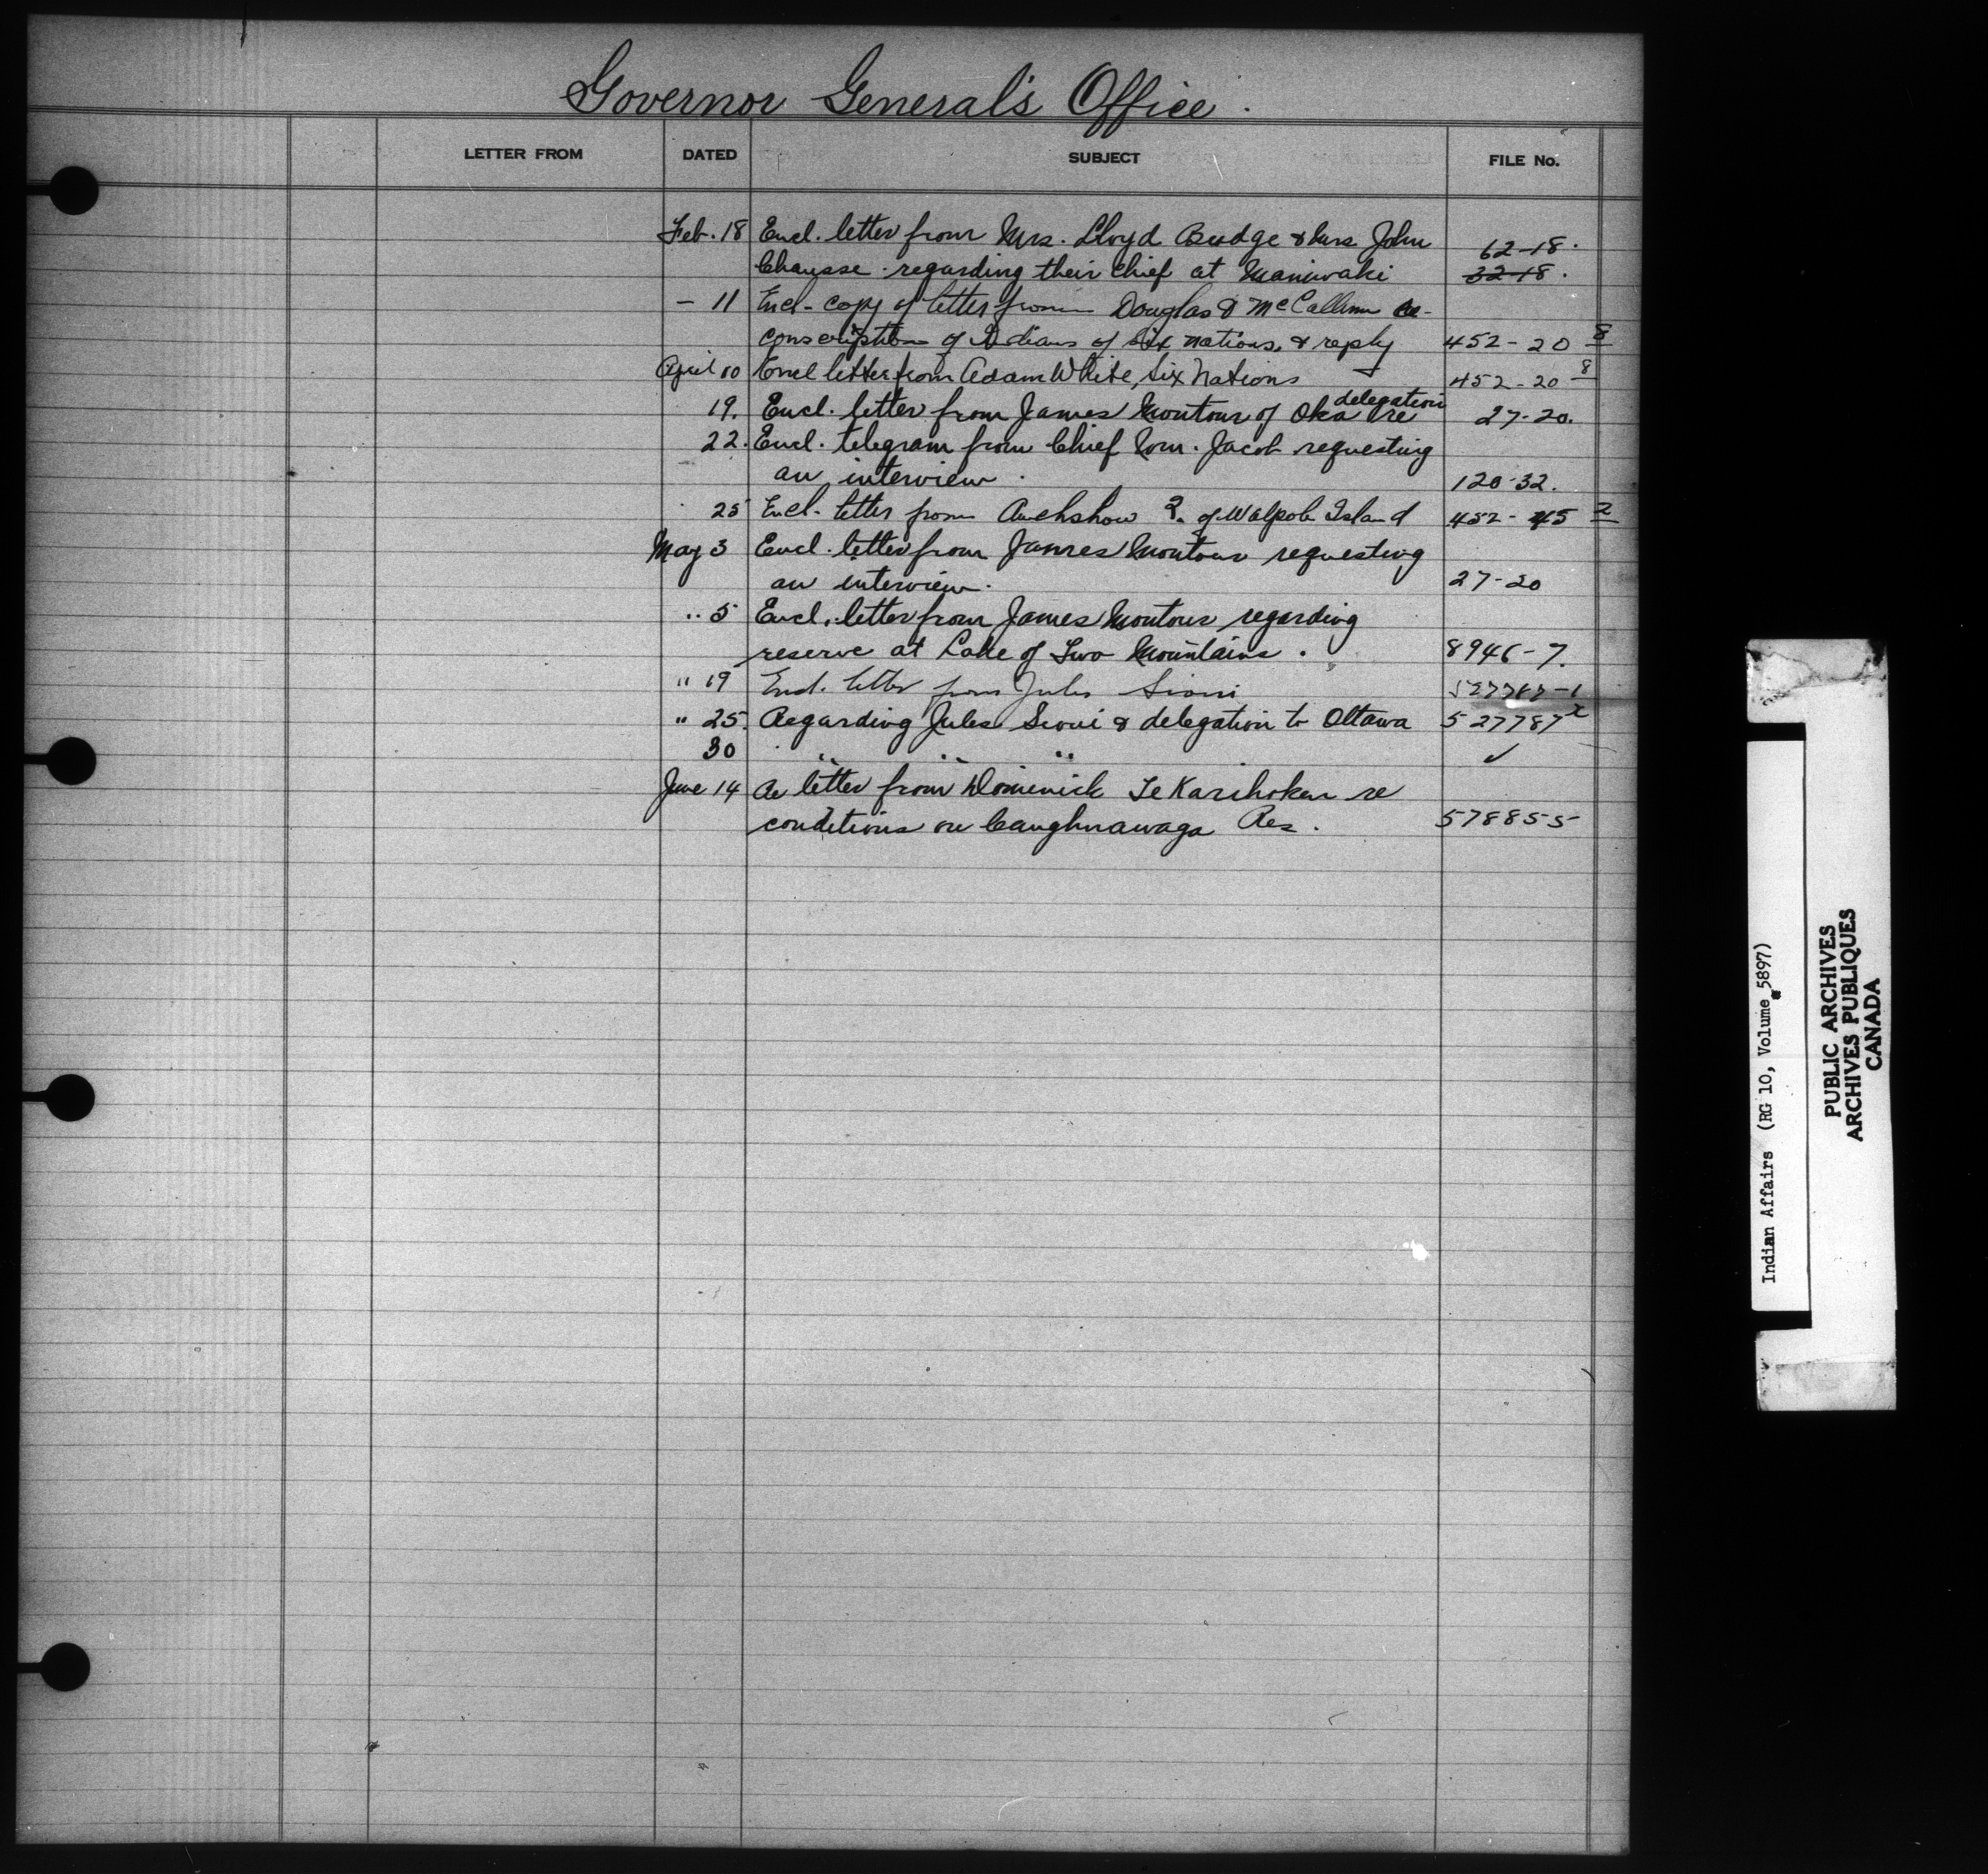 Governor General's Office.
LETTER FROM DATED SUBJECT FILE No.
Feb. 18 Encl. letter from Mrs. Lloyd Budge & Mrs. John 62-18.
Chausse regarding their chief at Maniwaki 32-18.
- 11 Encl- copy of letter from Douglas & McCallum re-
conscription of Indians of Six Nations, & reply 452-20 8
April 10 Encl letter from Adam White, Six Nations 452-20 8
delegation
19. Encl. letter from James Montour of Oka re 27-20.
22. Encl. telegram from Chief Wm. Jacob requesting
an interview. 120-32.
25 Encl. letter from ? of Walpole Island 452-45 2
May 3 Encl. letter from James Montour requesting
an interview. 27-20
" 5 Encl. letter from James Montour regarding
reserve at Lake of Two Mountains. 8946-7.
" 19 Encl. letter from Jules Sioui 527787-1
" 25. Regarding Jules Sioui & delegation to Ottawa 527787 x
30 " " " ✓
June 14 Re letter from Dominick Te Karihoken re
conditions on Caughnawaga Res. 578855
Indian Affairs (RG 10, Volume 5897)
PUBLIC ARCHIVES
ARCHIVES PUBLIQUES
CANADA